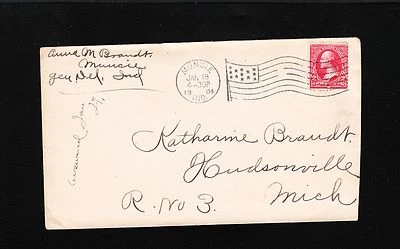 Anna M Brandt.
Muncie
Gen Del, Ind
MUNCIE
JAN 19
4-30P
19 04
IND.
Answered Jan
Katharine Brandt.
Hudsonville
R. No 3. Mich